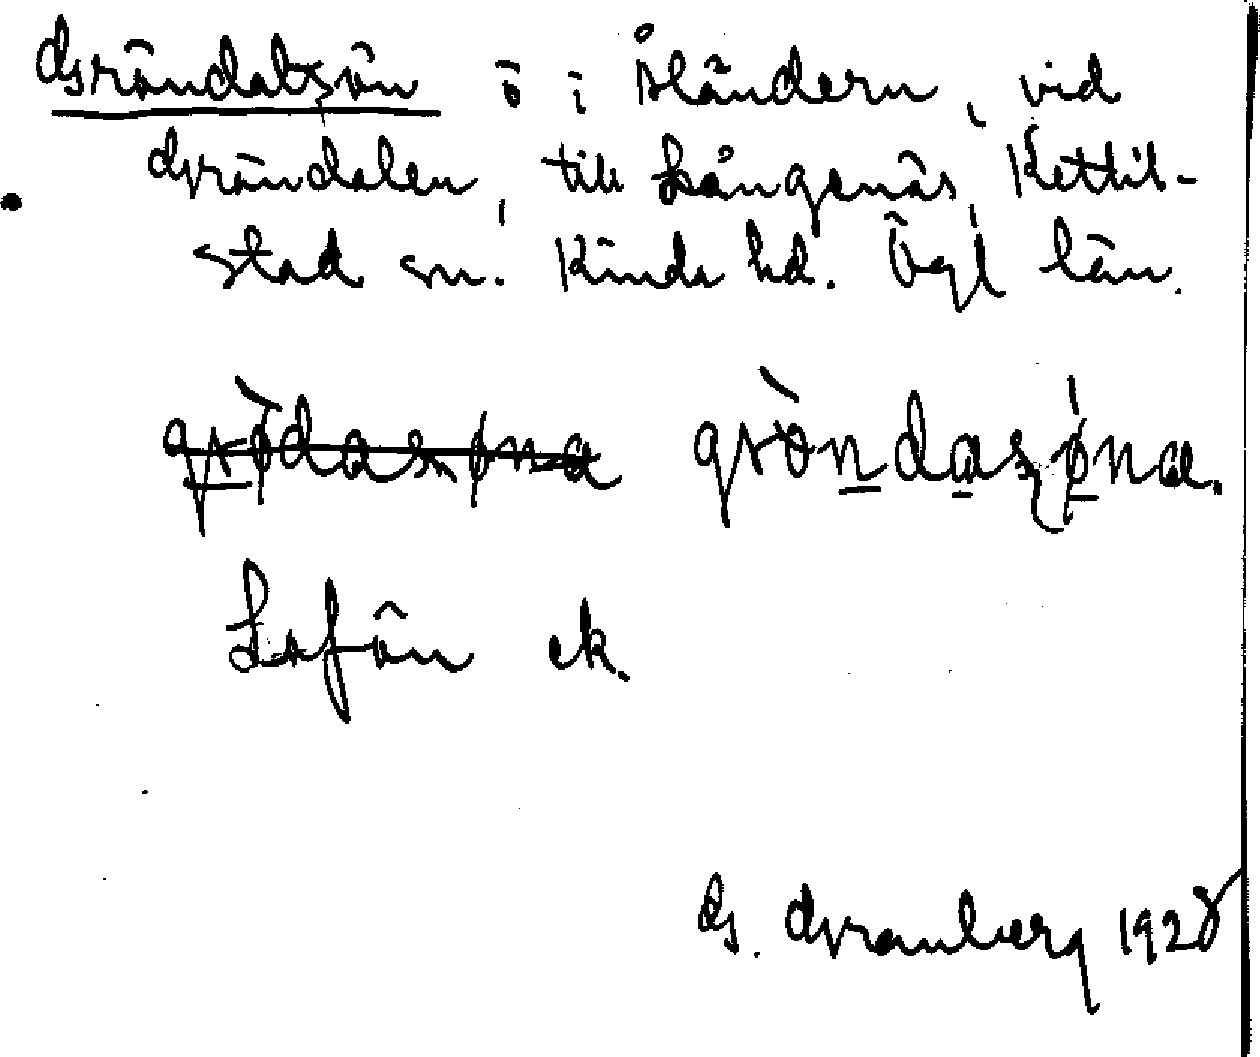 Gröndalsön ö i Åländern, vid
Gröndalen, till Långenäs, Kettil-
stad sn. Kinds hd. Ögl län.
grödasøna gròndasøna.
Lofön ek.
G. Granberg 1928